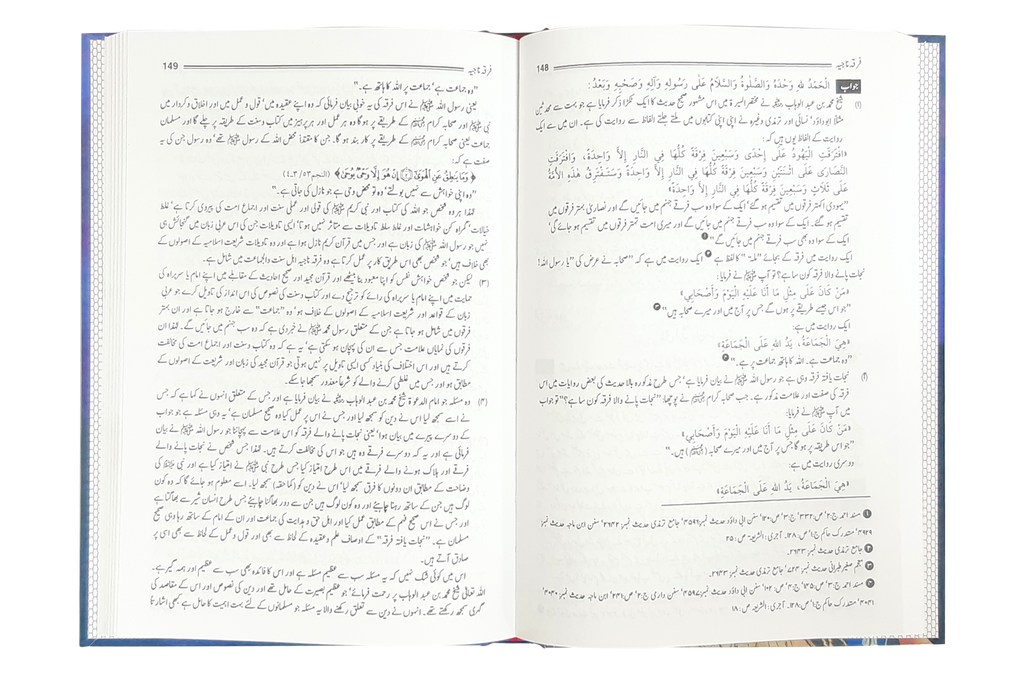 148
فرقہ ناجیہ
جواب
الْحَمْدُ للهِ وَحْدَهُ وَالصَّلٰوةُ وَالسَّلَامُ عَلَى رَسُولِهِ وَآلِهِ وَصَحْبِهِ وَبَعْدُ:
(۱) شیخ محمد بن عبد الوہاب نے مختصر السیرۃ میں اس مشہور صحیح حدیث کا ایک ٹکڑا ذکر فرمایا ہے جو بہت سے محدثین
مثلاً ابو داؤد‘ نسائی اور ترمذی وغیرہ نے اپنی اپنی کتابوں میں ملتے جلتے الفاظ سے روایت کی ہے۔ ان میں سے ایک
روایت کے الفاظ یوں ہیں کہ:
«افْتَرَقَتِ الْيَهُودُ عَلَى إِحْدَى وَسَبْعِينَ فِرْقَةً كُلُّهَا فِي النَّارِ إِلاَّ وَاحِدَةً، وَافْتَرَقَتِ
النَّصَارَى عَلَى اثْنَتَيْنِ وَسَبْعِينَ فِرْقَةً كُلُّهَا فِي النَّارِ إِلاَّ وَاحِدَةً وَسَتَفْتَرِقُ هَذِهِ الأُمَّةُ
عَلَى ثَلَاثٍ وَسَبْعِينَ فِرْقَةً كُلُّهَا فِي النَّارِ إِلاَّ وَاحِدَةً»
”یہودی اکہتر فرقوں میں تقسیم ہو گئے‘ ایک کے سوا وہ سب فرقے جہنم میں جائیں گے اور نصاریٰ بہتر فرقوں میں
تقسیم ہو گئے۔ ایک کے سوا وہ سب فرقے جہنم میں جائیں گے اور میری امت تہتر فرقوں میں تقسیم ہو جائے گی‘
ایک کے سوا وہ بھی سب فرقے جہنم میں جائیں گے“ ❶
ایک روایت میں فرقہ کے بجائے ”ملۃ“ کا لفظ ہے ❷ ایک روایت میں ہے کہ ”صحابہ نے عرض کی ”یا رسول اللہ!
نجات پانے والا فرقہ کون سا ہے؟ تو آپ ﷺ نے فرمایا:
«مَنْ كَانَ عَلَى مِثْلِ مَا أَنَا عَلَيْهِ الْيَوْمَ وَأَصْحَابِي»
”جو اس جیسے طریقے پر ہوں گے جس پر آج میں اور میرے صحابہ ہیں“ ❸
ایک روایت میں ہے:
«هِيَ الْجَمَاعَةُ، يَدُ اللهِ عَلَى الْجَمَاعَةِ»
”وہ جماعت ہے۔ اللہ کا ہاتھ جماعت پر ہے۔“ ❹
(۲) نجات یافتہ فرقہ وہی ہے جو رسول اللہ ﷺ نے بیان فرمایا ہے‘ جس طرح مذکورہ بالا حدیث کی بعض روایات میں اس
فرقہ کی صفت اور علامت مذکور ہے۔ جب صحابہ کرام نے پوچھا: ”نجات پانے والا فرقہ کون سا ہے؟“ تو جواب
میں آپ ﷺ نے فرمایا:
«مَنْ كَانَ عَلَى مِثْلِ مَا أَنَا عَلَيْهِ الْيَوْمَ وَأَصْحَابِي»
”جو اس طریقہ پر ہو گا جس پر آج میں اور میرے صحابہ ہیں۔“
دوسری روایت میں ہے:
«هِيَ الْجَمَاعَةُ، يَدُ اللهِ عَلَى الْجَمَاعَةِ»
❶ مسند احمد ج:۲‘ ص:۳۳۲‘ ج:۳‘ ص:۱۲۰‘ سنن ابی داؤد حدیث نمبر: ۴۵۹۶ جامع ترمذی حدیث نمبر: ۲۶۴۲‘ سنن ابن ماجہ حدیث نمبر:
۳۹۲۹‘ مستدرک حاکم ج:۱‘ ص:۱۲۸۔ آجری: الشریعہ ص: ۲۵
❷ جامع ترمذی حدیث نمبر: ۲۶۴۳۔
❸ معجم صغیر طبرانی حدیث نمبر: ۷۲۴‘ جامع ترمذی حدیث نمبر: ۲۶۴۳۔
❹ سنن ابی داؤد حدیث نمبر: ۴۵۹۷‘ سنن دارمی ج:۲‘ ص:۲۴۱‘ ابن ماجہ حدیث نمبر:
مستدرک حاکم ج:۱‘ ص:۱۲۸۔ آجری: الشریعہ ص: ۱۸
149
فرقہ ناجیہ
”وہ جماعت ہے‘ جماعت پر اللہ کا ہاتھ ہے۔“
یعنی رسول اللہ ﷺ نے اس فرقہ کی یہ خوبی بیان فرمائی کہ وہ اپنے عقیدہ میں‘ قول و عمل میں اور اخلاق و کردار میں
نبی ﷺ اور صحابہ کرام کے طریقے پر ہو گا وہ ہر عمل اور ہر پرہیز میں کتاب و سنت کے طریقہ پر چلے گا اور مسلمان
جماعت یعنی صحابہ کرام کے طریقے پر کار بند ہو گا۔ جن کا مقتدا محض اللہ کے رسول ﷺ تھے‘ وہ رسول جن کی یہ
صفت ہے کہ:
﴿وَمَا يَنطِقُ عَنِ الْهَوَىٰ إِنْ هُوَ إِلَّا وَحْيٌ يُوحَىٰ﴾ (النجم۵۳/ ۳-۴)
”وہ اپنی خواہش سے نہیں بولتے‘ وہ تو محض وحی ہے جو نازل کی جاتی ہے۔“
لہٰذا ہر وہ شخص جو اللہ کی کتاب اور نبی کریم ﷺ کی قولی اور عملی سنت اور اجماع امت کی پیروی کرتا ہے‘ غلط
خیالات‘ گمراہ کن خواہشات اور غلط سلط تاویلات سے متاثر نہیں ہوتا‘ ایسی تاویلات جن کی اس عربی زبان میں گنجائش ہی
نہیں جو رسول اللہ ﷺ کی زبان ہے اور جس میں قرآن کریم نازل ہوا ہے اور وہ تاویلات شریعت اسلامیہ کے اصولوں کے
بھی خلاف ہیں‘ جو شخص بھی اس طریق کار پر عمل کرتا ہے وہ فرقہ ناجیہ اہل سنت والجماعت میں شامل ہے۔
(۳) لیکن جو شخص خواہش نفس کو اپنا معبود بنا بیٹھے اور قرآن مجید اور صحیح احادیث کے مقابلے میں اپنے امام یا سربراہ کی
حمایت میں اپنے امام یا سربراہ کی رائے کو ترجیح دے اور کتاب و سنت کی نصوص کی اس انداز کی تاویل کرے جو عربی
زبان کے قواعد اور شریعت اسلامیہ کے اصولوں کے خلاف ہو‘ وہ ”جماعت“ سے خارج ہو جاتا ہے اور ان بہتر
فرقوں میں شامل ہو جاتا ہے جن کے متعلق رسول محمد ﷺ نے خبر دی ہے کہ وہ سب جہنم میں جائیں گے۔ لہٰذا ان
فرقوں کی نمایاں علامت جس سے ان کی پہچان ہو سکتی ہے‘ یہ ہے کہ وہ کتاب و سنت اور اجماع امت کی مخالفت
کرتے ہیں اور اس اختلاف کی بنیاد کسی ایسی تاویل پر نہیں ہوتی جو قرآن مجید کی زبان اور شریعت کے اصولوں کے
مطابق ہو اور جس میں غلطی کرنے والے کو شرعاً معذور سمجھا جا سکے۔
(۴) وہ مسئلہ جو امام الدعوۃ شیخ محمد بن عبد الوہاب نے بیان فرمایا ہے اور جس کے متعلق انہوں نے کہا ہے کہ جس
نے اسے سمجھ لیا اس نے دین کو سمجھ لیا اور جس نے اس پر عمل کیا وہ صحیح مسلمان ہے‘ یہ وہی مسئلہ ہے جو جواب
کے دوسرے پیرے میں بیان ہوا‘ یعنی نجات پانے والے فرقہ کو اس علامت سے پہچاننا جو رسول اللہ ﷺ نے بیان
فرمائی ہے اور یہ کہ دوسرے فرقے وہ ہیں جو اس کی مخالفت کرتے ہیں۔ لہٰذا جس شخص نے نجات پانے والے
فرقے اور ہلاک ہونے والے فرقے میں اس طرح امتیاز کیا جس طرح نبی ﷺ نے امتیاز کیا ہے اور نبی کی
وضاحت کے مطابق ان دونوں کا فرق سمجھ لیا‘ اس نے دین کو (کماحقہ) سمجھ لیا۔ اسے معلوم ہو جائے گا کہ وہ کون
لوگ ہیں جن کے ساتھ رہنا چاہئے اور وہ کون لوگ ہیں جن سے دور بھاگنا چاہئے جس طرح انسان شیر سے بھاگتا ہے
اور جس نے اس صحیح فہم کے مطابق عمل کیا اور اہل حق و ہدایت کی جماعت اور ان کے امام کے ساتھ رہا وہی صحیح
مسلمان ہے۔ ”نجات یافتہ فرقہ“ کے اوصاف علم و عقیدہ کے لحاظ سے بھی اور قول و عمل کے لحاظ سے بھی اسی پر
صادق آتے ہیں۔
اس میں کوئی شک نہیں کہ یہ مسئلہ سب سے عظیم مسئلہ ہے اور اس کا فائدہ بھی سب سے عظیم اور ہمہ گیر ہے۔
اللہ تعالیٰ شیخ محمد بن عبد الوہاب پر رحمت فرمائے‘ جو عظیم بصیرت کے حامل تھے اور دین کی نصوص اور اس کے مقاصد کی
گہری سمجھ رکھتے تھے۔ انہوں نے دین سے تعلق رکھنے والا یہ مسئلہ جو مسلمانوں کے لئے بہت اہمیت کا حامل ہے کبھی اشارتاً